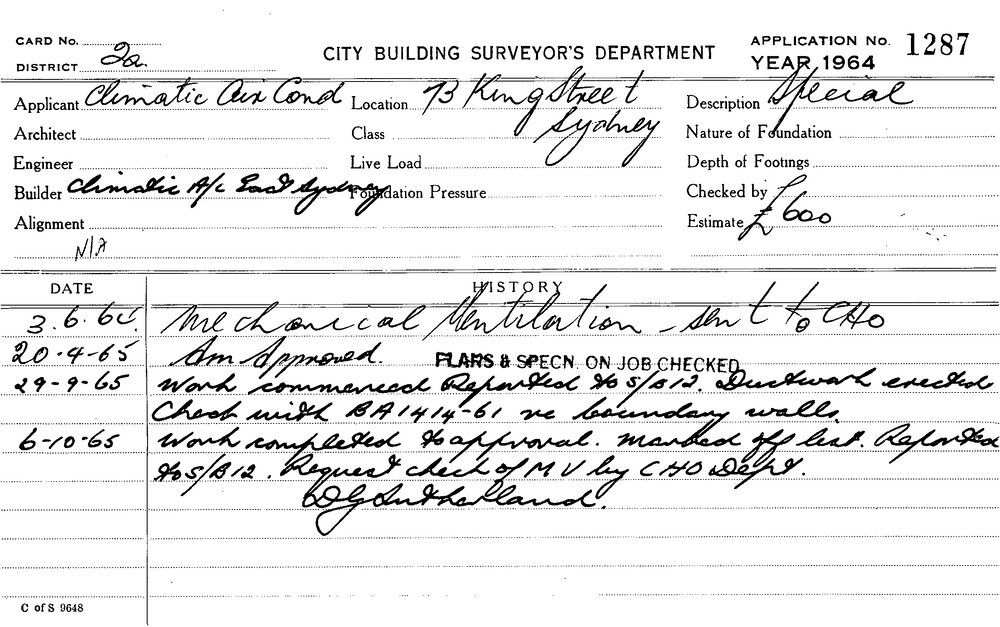 CARD No.
DISTRICT 2a.
CITY BUILDING SURVEYOR'S DEPARTMENT
APPLICATION No. 1287
YEAR, 1964
Applicant Climatic Air Cond Location 73 King Street Sydney Description Special
Architect Class Nature of Foundation
Engineer Live Load Depth of Footings
Builder Climatic A/c East Sydney Foundation Pressure Checked by
Alignment Estimate £600
N/A
DATE HISTORY
3.6.64. Mechanical Ventilation - sent to CHO
20-4-65 Am Approved. PLANS & SPECN. ON JOB CHECKED
29-9-65 Work commenced Reported to S/B12. Ductwork erected
Check with BA1414-61 re boundary walls
6-10-65 Work completed to approval. Marked off list. Reported
to S/B12. Request check of M V by CHO Dept.
DG Sutherland.
C of S 9648